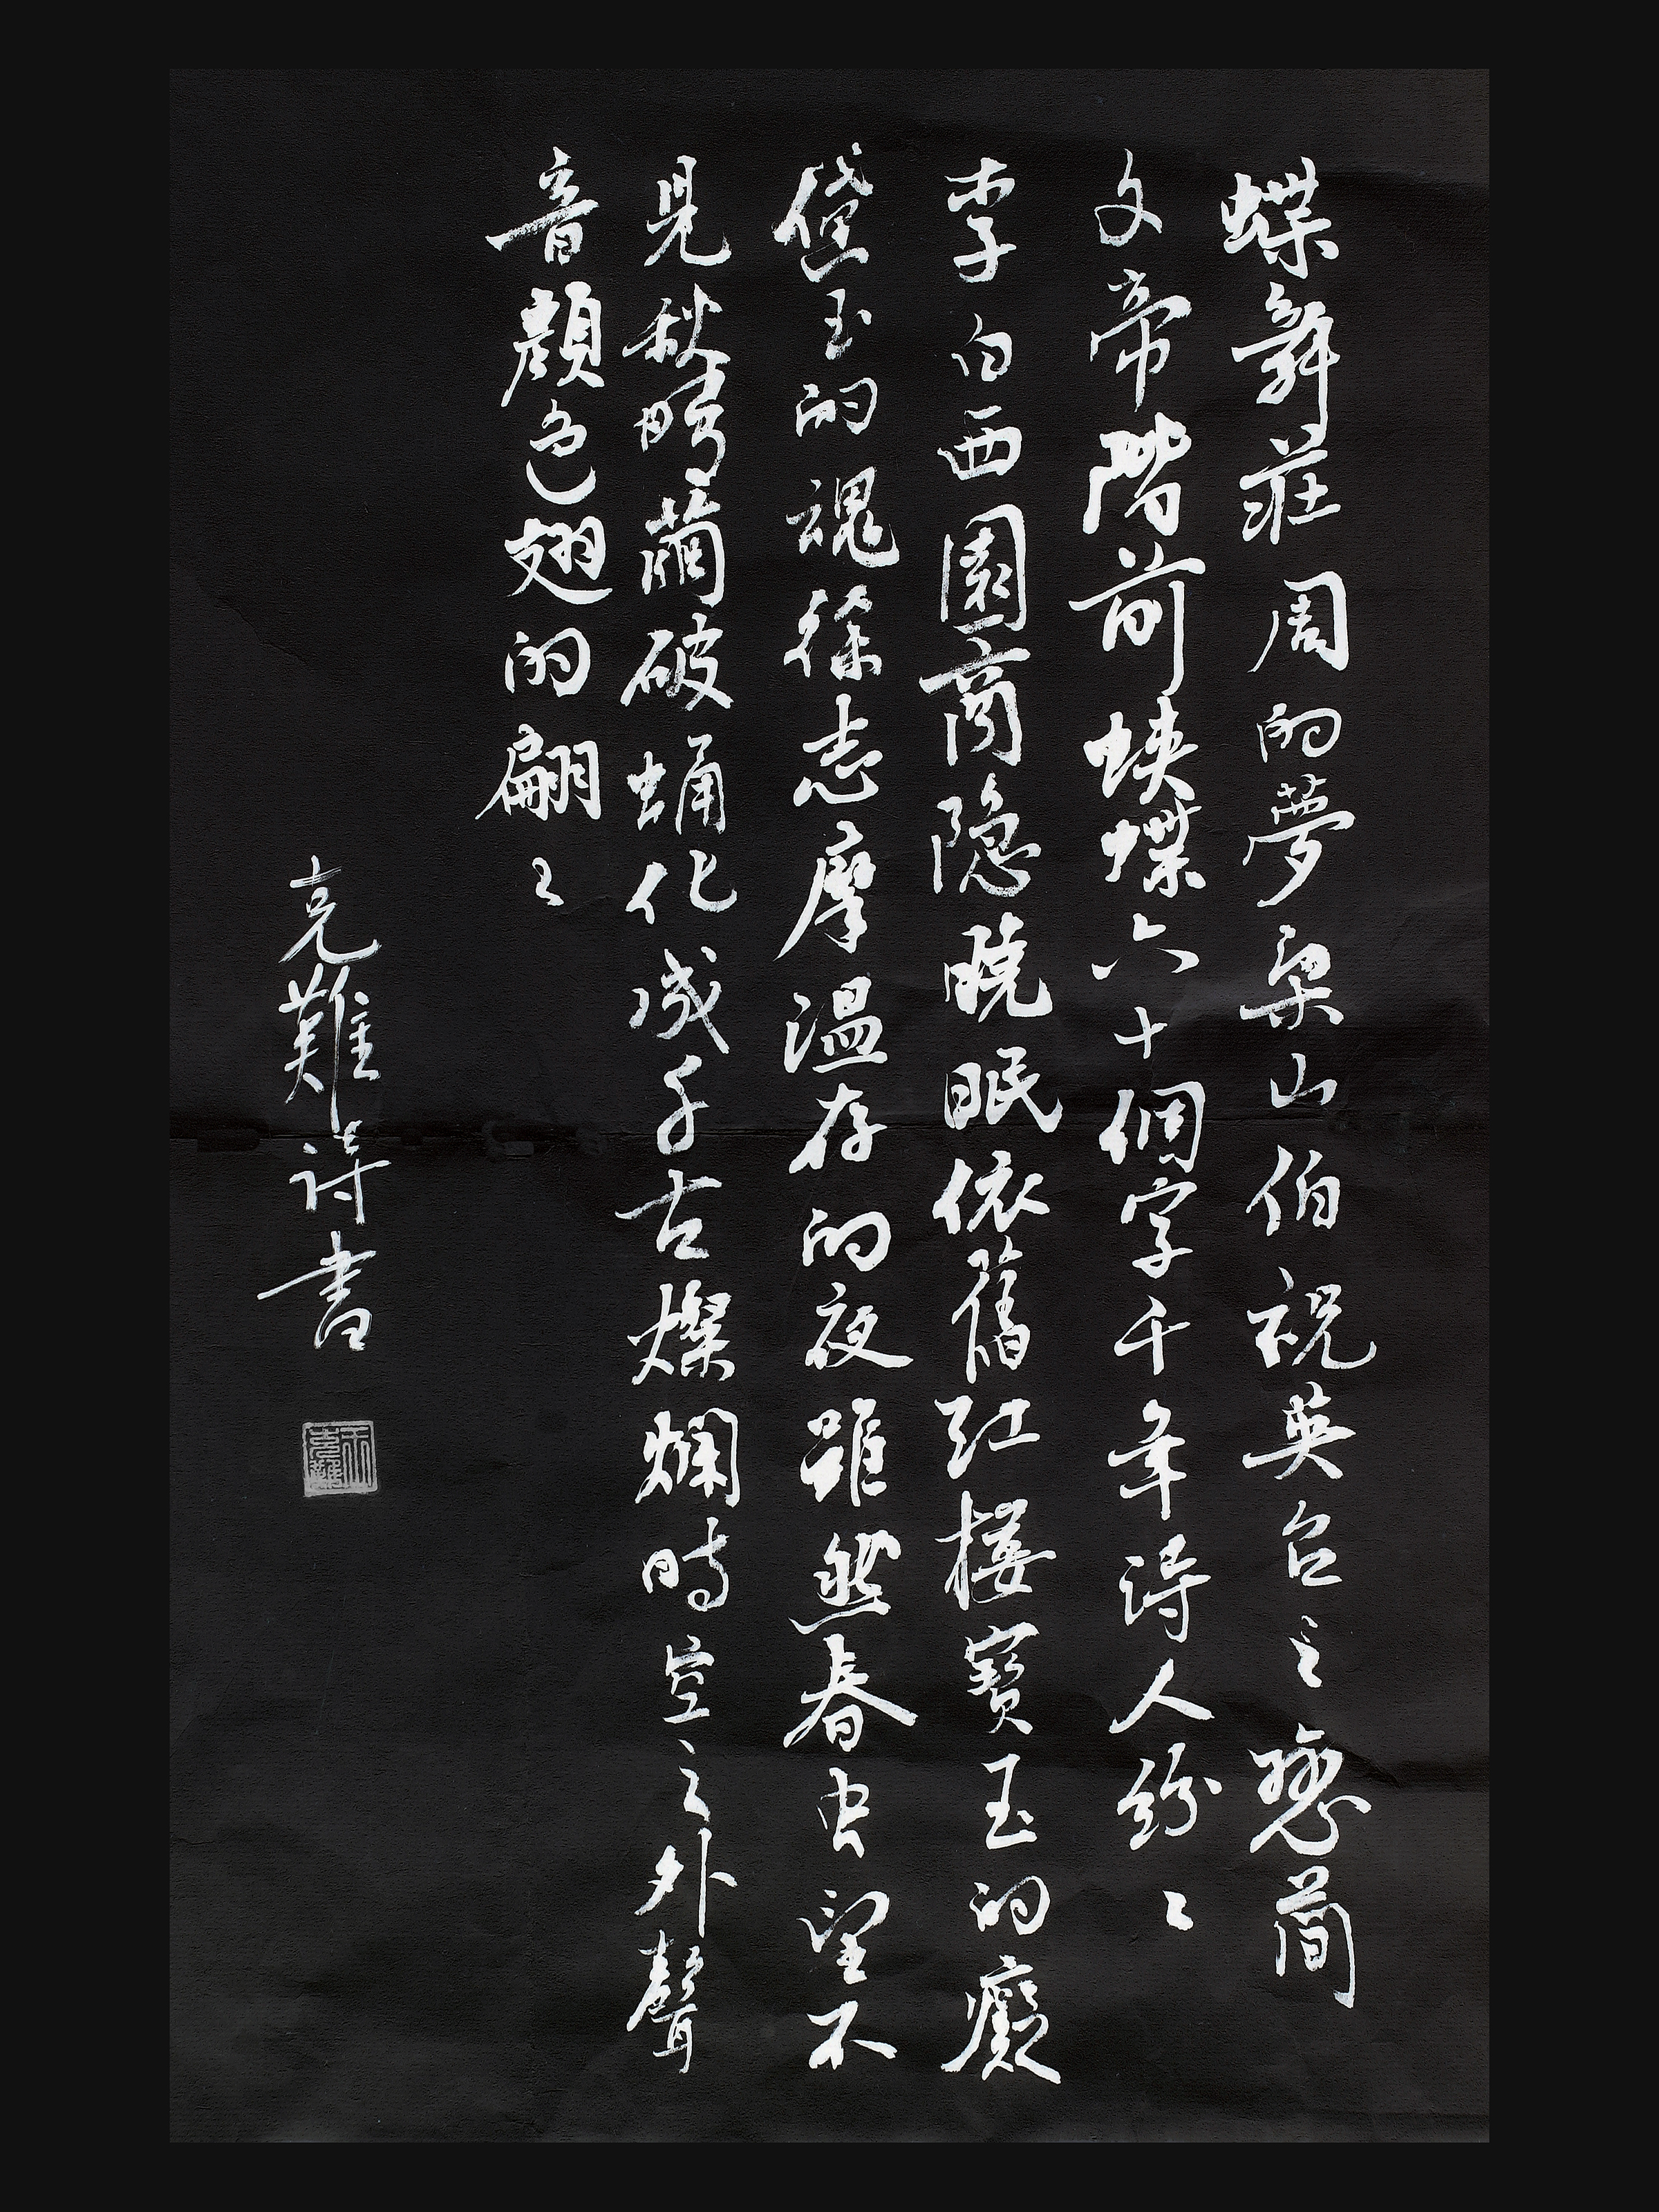 蝶舞莊周的夢梁山伯祝英台之戀簡
文帝階前蛺蝶六十個字千年詩人紛々
李白西園商隐曉眠依舊红樓寳玉的癡
黛玉的魂徐志摩溫存的夜雖然春虫望不
見秋晴繭破蛹化成千古燦爛時空之外聲
音顏色翅的翩々
克難詩書